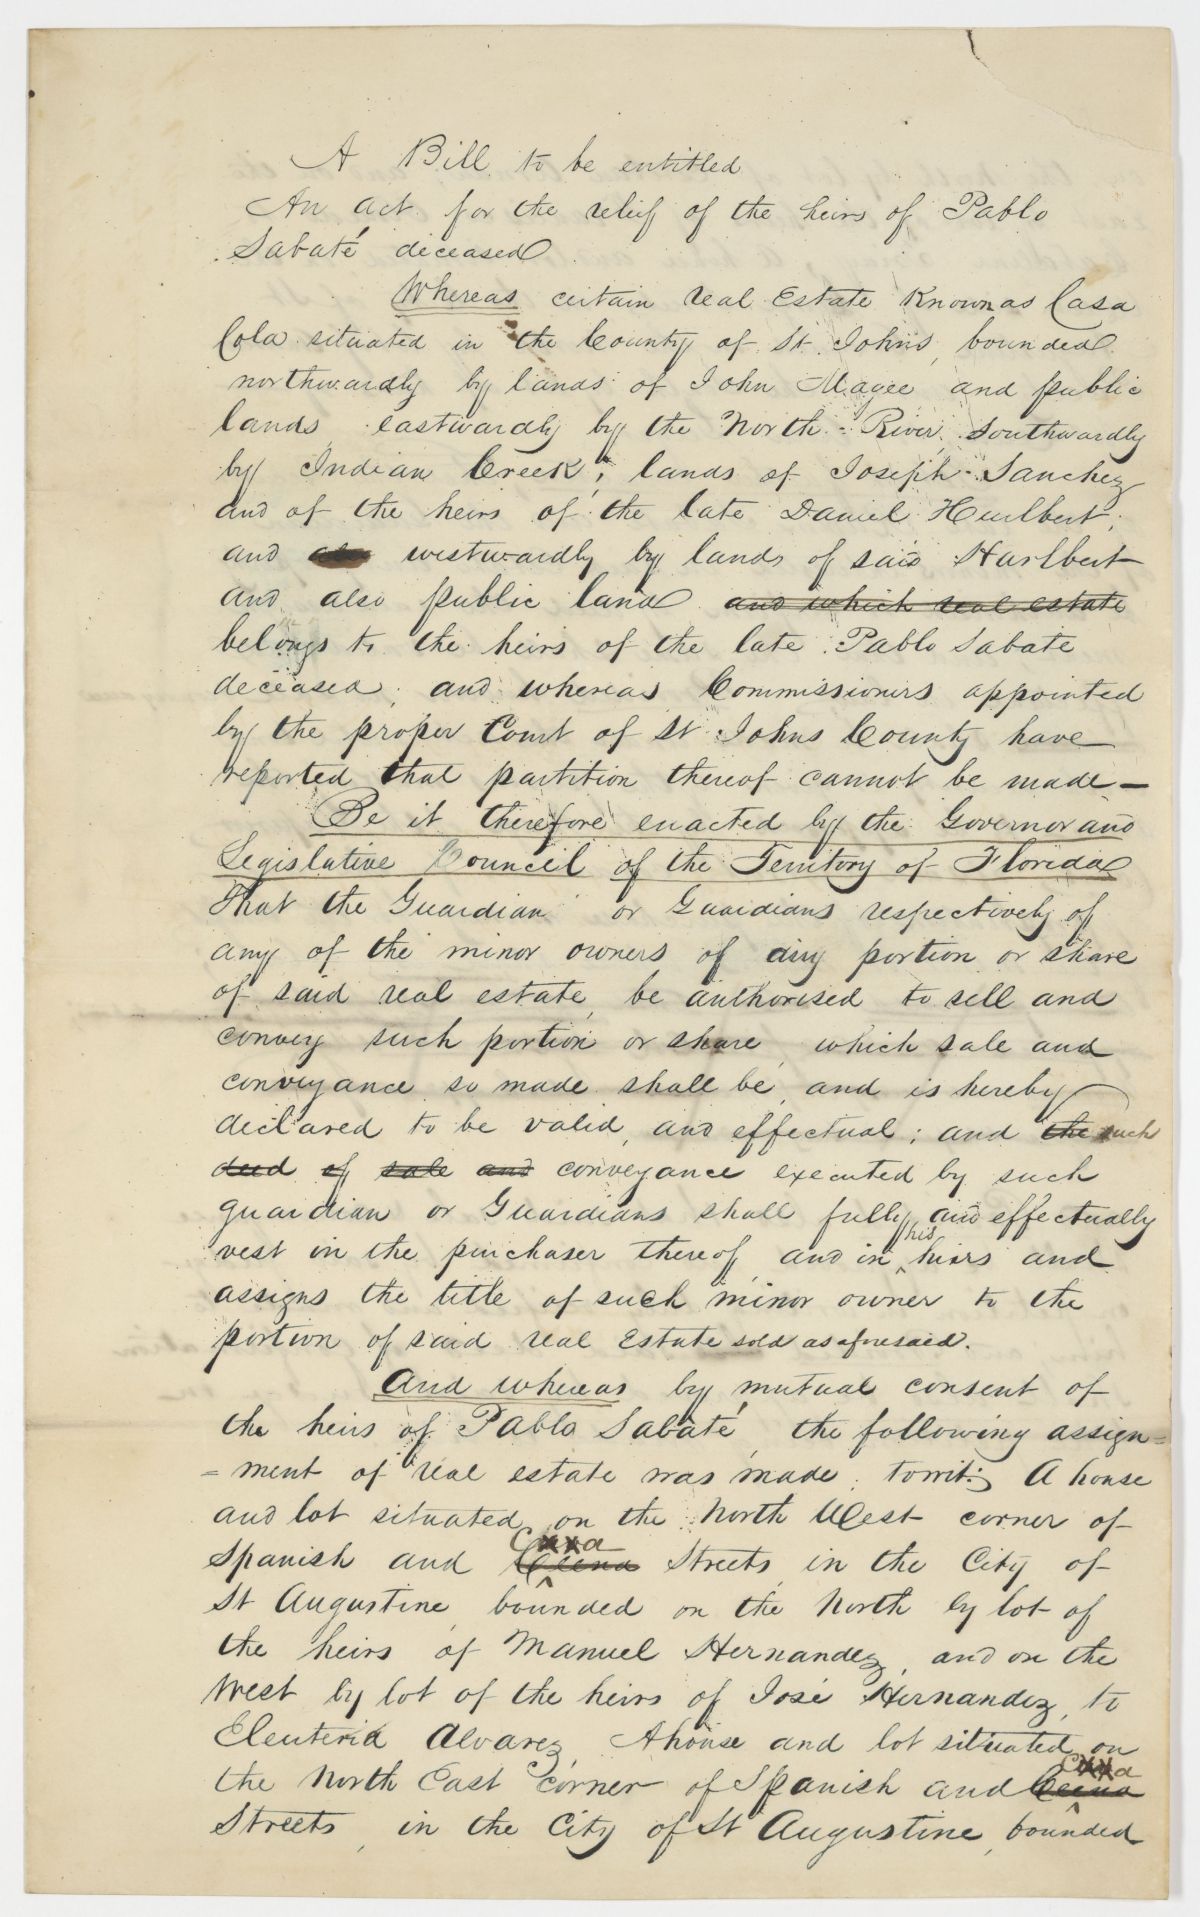 A Bill to be entitled
An act for the relief of the heirs of Pablo
Sabaté deceased
Whereas certain real Estate Known as Casa
Cola situated in the County of St. Johns, bounded
northwardly by lands of John Magee and public
lands, eastwardly by the North River, Southwardly
by Indian Creek, lands of Joseph Sanchez
and of the heirs of the late Daniel Hurlbert,
and also westwardly by lands of said Hurlbert
and also public land and which real estate
belongs to the heirs of the late Pablo Sabate
deceased, and whereas Commissioners appointed
by the proper Court of St Johns County have
reported that partition thereof cannot be made—
Be it therefore enacted by the Governor and
Legislative Council of the Territory of Florida
That the Guardian or Guardians respectively of
any of the minor owners of any portion or share
of said real estate, be authorised to sell and
convey such portion or share, which sale and
conveyance so made shall be, and is hereby
declared to be valid, and effectual; and the such
deed of sale and conveyance executed by such
guardian or Guardians shall fully and effectually
vest in the purchaser thereof, and in his heirs and
assigns the title of such minor owner to the
portion of said real Estate sold as aforesaid.
And whereas by mutual consent of
the heirs of Pablo Sabaté, the following assign=
=ment of real estate was made. towit: A house
and lot situated on the North West corner of
Spanish and Streets in the City of
St Augustine, bounded on the North by lot of
the heirs of Manuel Hernandez, and on the
West by lot of the heirs of José Hernandez, to
Eleuteria Alvarez, A house and lot situated on
the North East corner of Spanish and
Streets, in the City of St Augustine, bounded